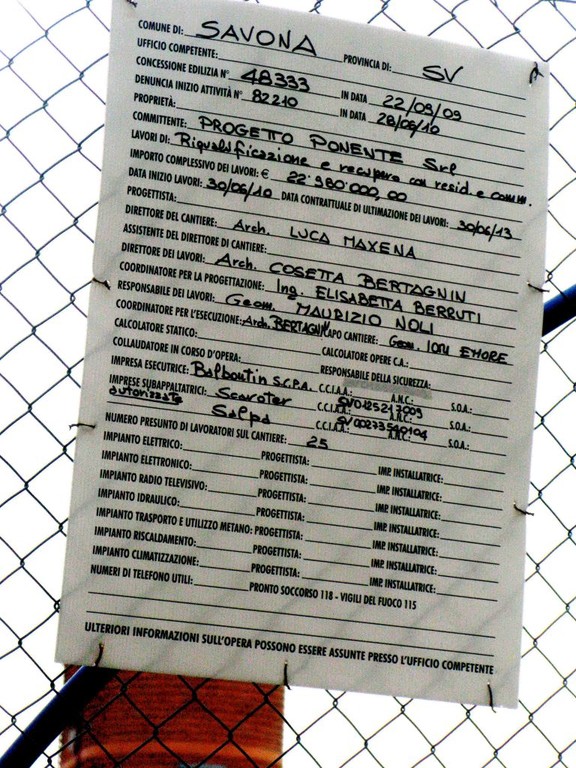 COMUNE DI: SAVONA
UFFICIO COMPETENTE: PROVINCIA DI: SV
CONCESSIONE EDILIZIA N° 48333 IN DATA 22/09/09
DENUNCIA INIZIO ATTIVITÀ N° 82210 IN DATA 28/06/10
PROPRIETÀ:
COMMITTENTE: PROGETTO PONENTE Srl
LAVORI DI: Riqualificazione e recupero con resid. e comm.
IMPORTO COMPLESSIVO DEI LAVORI: € 22'980'000,00
DATA INIZIO LAVORI: 30/06/10 DATA CONTRATTUALE DI ULTIMAZIONE DEI LAVORI: 30/06/13
PROGETTISTA:
DIRETTORE DEL CANTIERE: Arch. LUCA MAXENA
ASSISTENTE DEL DIRETTORE DI CANTIERE:
DIRETTORE DEI LAVORI: Arch. COSETTA BERTAGNIN
COORDINATORE PER LA PROGETTAZIONE: Ing. ELISABETTA BERRUTI
RESPONSABILE DEI LAVORI: Geom. MAURIZIO NOLI
COORDINATORE PER L'ESECUZIONE: Arch. BERTAGNIN CAPO CANTIERE: Geom. EMORE
CALCOLATORE STATICO: CALCOLATORE OPERE C.A.:
COLLAUDATORE IN CORSO D'OPERA: RESPONSABILE DELLA SICUREZZA:
IMPRESA ESECUTRICE: Balboutin S.C.P.A. C.C.I.A.A.: A.N.C.: S.O.A.:
IMPRESE SUBAPPALTATRICI: Scavoter C.C.I.A.A.: SV0125217009 A.N.C.: S.O.A.:
autorizzate Salpa C.C.I.A.A.: SV00273540104 A.N.C.: S.O.A.:
NUMERO PRESUNTO DI LAVORATORI SUL CANTIERE: 25
IMPIANTO ELETTRICO: PROGETTISTA: IMP. INSTALLATRICE:
IMPIANTO ELETTRONICO: PROGETTISTA: IMP. INSTALLATRICE:
IMPIANTO RADIO TELEVISIVO: PROGETTISTA: IMP. INSTALLATRICE:
IMPIANTO IDRAULICO: PROGETTISTA: IMP. INSTALLATRICE:
IMPIANTO TRASPORTO E UTILIZZO METANO: PROGETTISTA: IMP. INSTALLATRICE:
IMPIANTO RISCALDAMENTO: PROGETTISTA: IMP. INSTALLATRICE:
IMPIANTO CLIMATIZZAZIONE: PROGETTISTA: IMP. INSTALLATRICE:
NUMERI DI TELEFONO UTILI: PRONTO SOCCORSO 118 - VIGILI DEL FUOCO 115
ULTERIORI INFORMAZIONI SULL'OPERA POSSONO ESSERE ASSUNTE PRESSO L'UFFICIO COMPETENTE